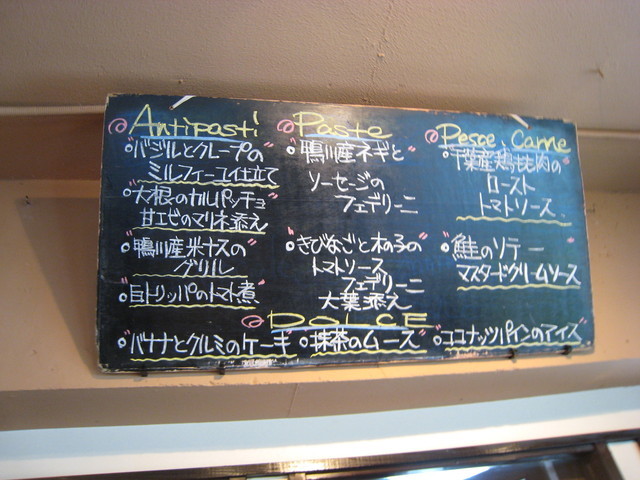 Antipasti
バジルとクレープの
ミルフィーユ仕立て
大根のカルパッチョ
甘エビのマリネ添え
鴨川産米ナスの
グリル
トリッパのトマト煮
Paste
鴨川産ネギと
ソーセージの
フェデリーニ
きびなごと木の子の
トマトソース
フェデリーニ
大葉添え
Pesce Carne
千葉産鶏もも肉の
ロースト
トマトソース
鮭のソテー
マスタードクリームソース
DOLCE
バナナとクルミのケーキ
抹茶のムース
ココナッツパインのアイス